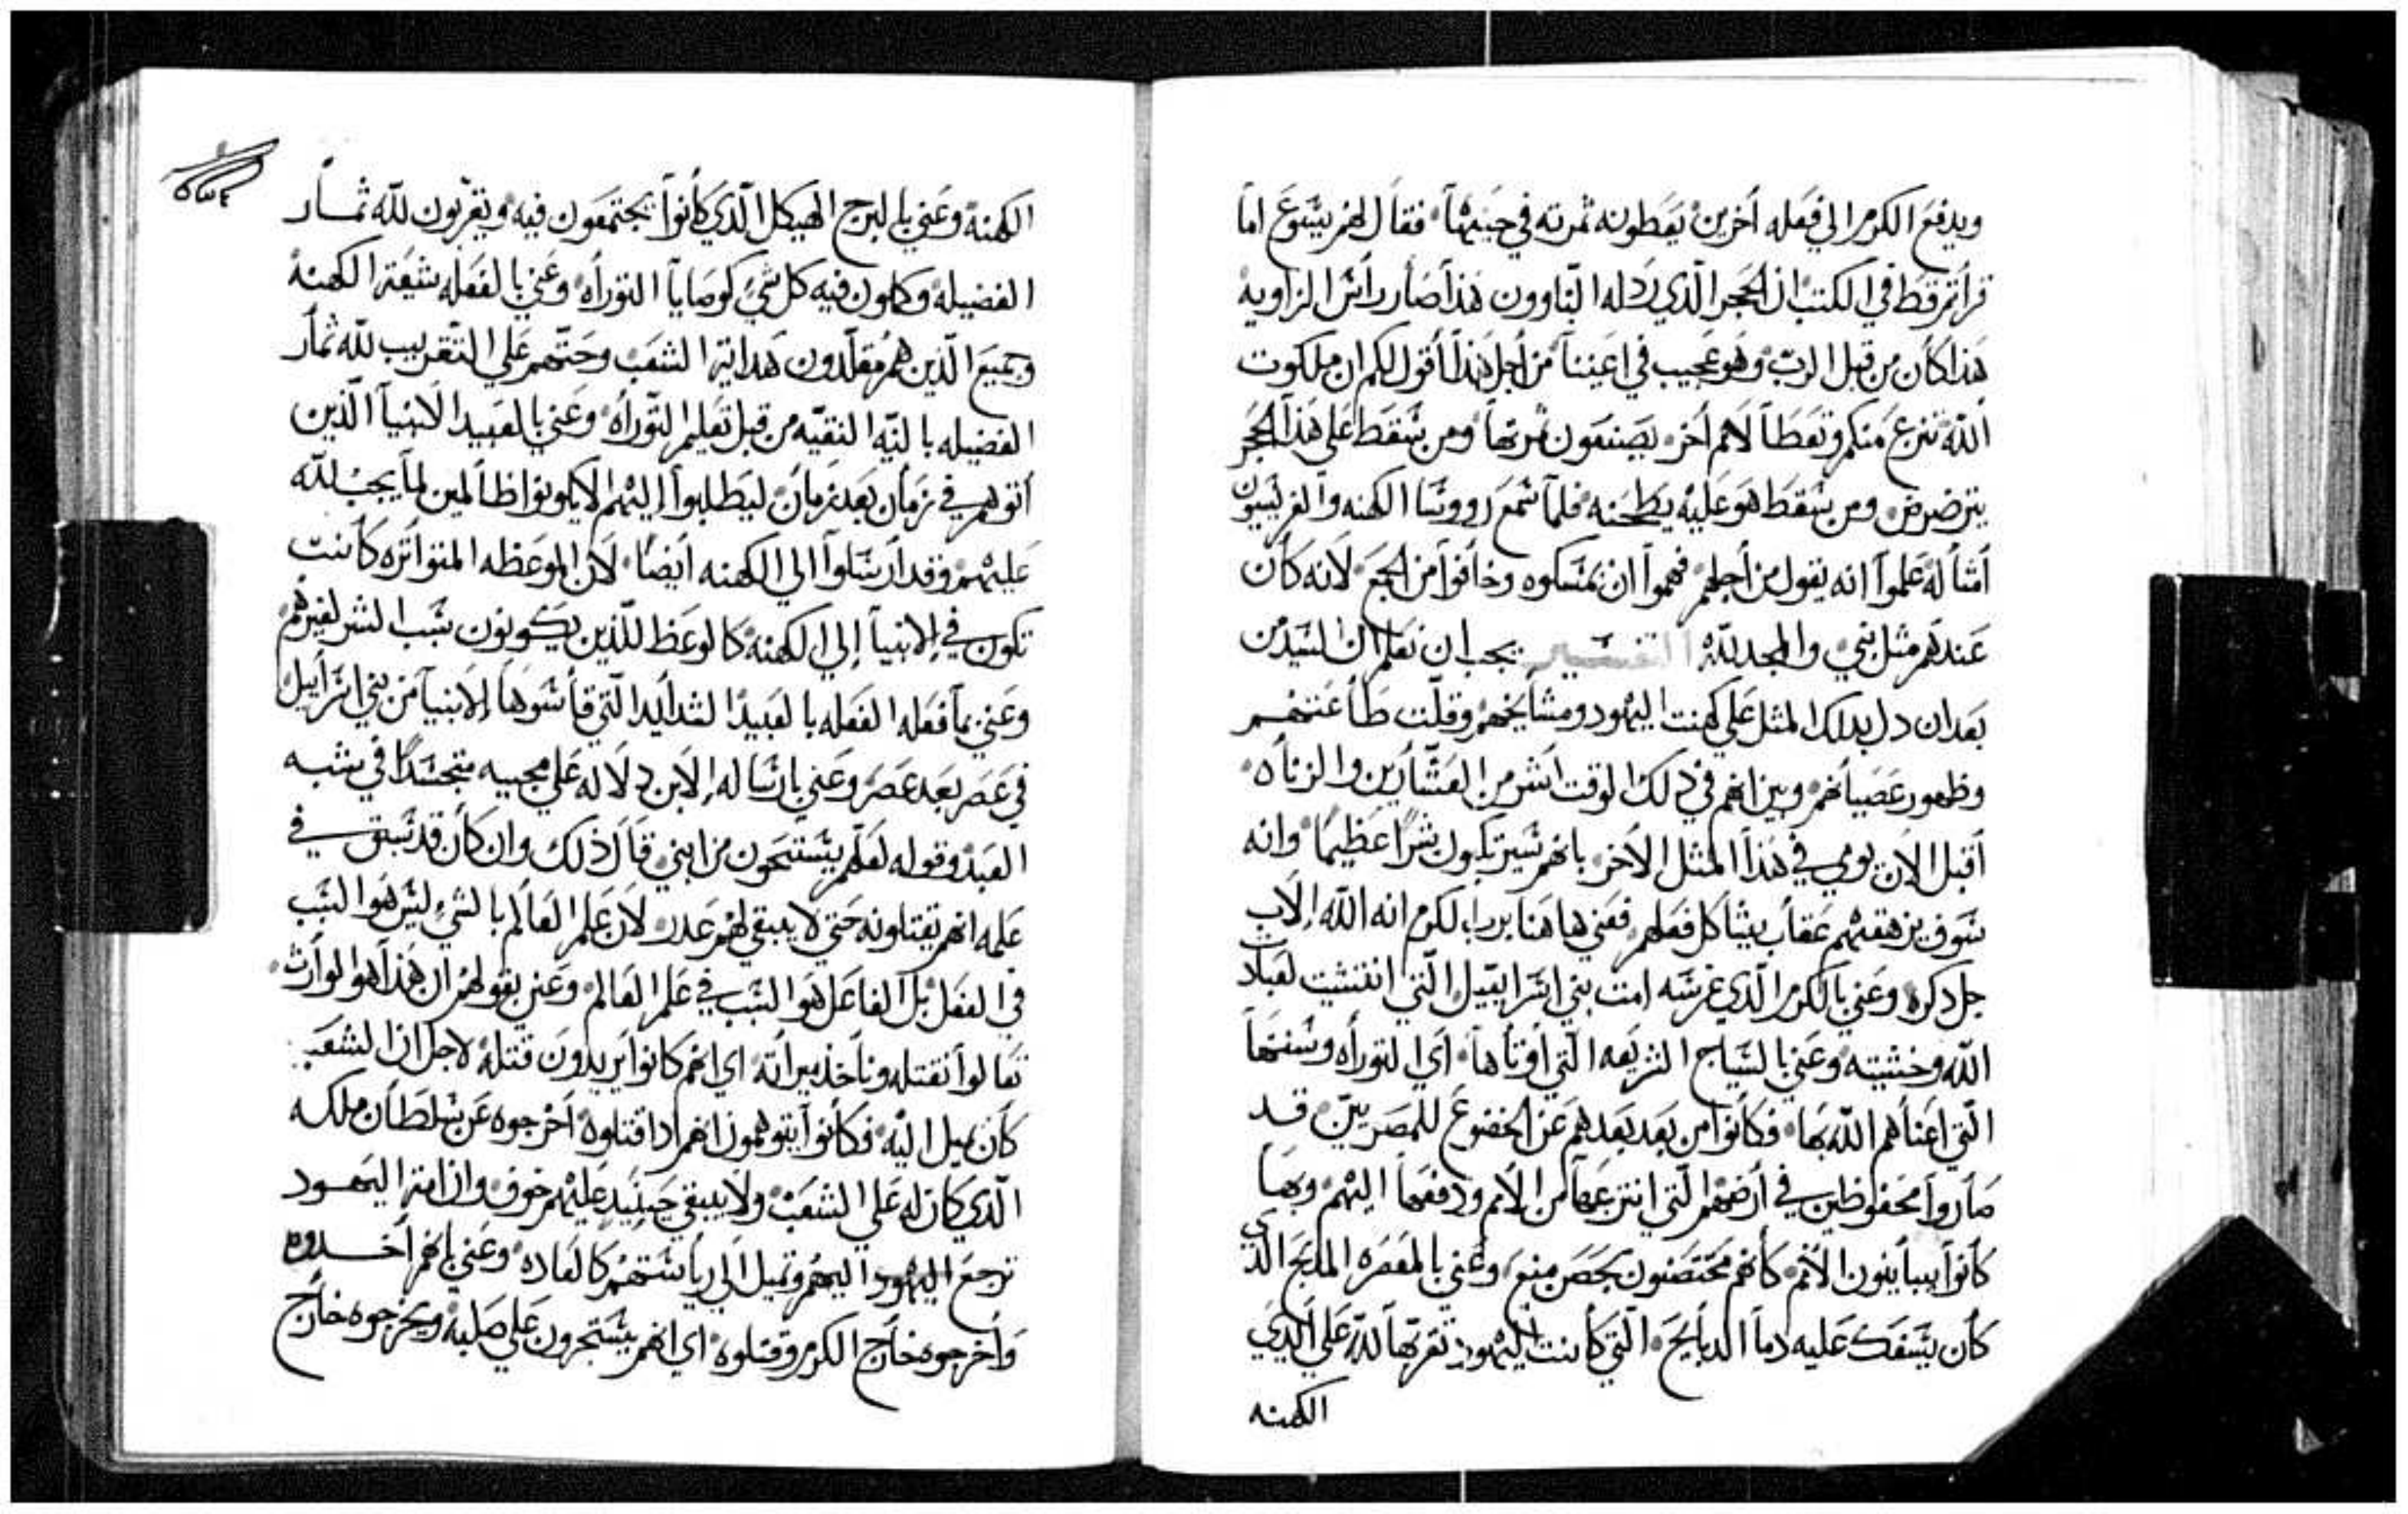 ويدفع الكرم الي فعله اخرين يعطونه ثمرته في حينها فقال لهم يسوع اما
قراتم قط في الكتب ان الحجر الذي رذله البناوون هذا صار راس الزاويه
هذا كان من قبل الرب وهو عجيب في اعيننا من اجل هذا اقول لكم ان ملكوت
الله تنزع منكم وتعطا لامم اخر يصنعون ثمرتها ومن سقط علي هذا الحجر
يترضرض ومن سقط هو عليه يطحنه فلما سمع رووسا الكهنه والفريسيون
امثاله علموا انه يقول من اجلهم فهموا ان يمسكوه وخافوا من الجمع لانه كان
عندهم مثل نبي والمجد لله التفسير يجب ان نعلم ان السيد من
بعد ان دل بذلك المثل علي كهنت اليهود ومشايخهم وقلت طاعتهم
وظهور عصيانهم وبين انهم في ذلك الوقت اشر من العشارين والزناه
اقبل الان يومي في هذا المثل الاخر بانهم سيرتكبون شرا عظيما وانه
سوف يرهقهم عقاب يشاكل فعلهم فعني هاهنا برب الكرم انه الله الاب
جل ذكره وعني بالكرم الذي غرسه امت بني اسراييل التي انتشيت لعباد
الله وخشيته وعني بالسياج الشريعه التي اوتاها اي التوراه وسنتها
التي اعناهم الله بها فكانوا من بعد بعدهم عن الخضوع للمصريين قد
صاروا محفوظين في ارضهم التي انتزعها من الامم ودفعها اليهم وبها
كانوا يباينون الامم كانهم محتصنون بحصن منيع وعني بالمعصره المذبح الذي
كان يسفك عليه دما الدبايح التي كانت اليهود تقربها لله علي ايدي
الكهنه
الكهنه وعني بالبرج الهيكل الذي كانوا يجتمعون فيه ويقربون لله ثمار
الفضيله وكلون فيه كل شي كوصايا التوراه وعني بالفعله شيعة الكهنه
وجميع الذين هم مقلدون هداية الشعب وحثهم علي التقريب لله ثمار
الفضيله بالنيه النقيه من قبل تعليم التوراه وعني بالعبيد الانبيا الذين
اتوهم في زمان بعد زمان ليطلبوا اليهم الا يكونوا ظالمين لما يجب لله
عليهم وقد ارسلوا الي الكهنه ايضا لان الموعظه المتواتره كانت
تكون في الانبيا الي الكهنه كالوعظ للذين يكونون سبب الشر لغيرهم
وعني بما فعله الفعله بالعبيد الشدايد التي قاسوها الانبيا من بني اسراييل
في عصر بعد عصر وعني بارساله الابن دلاله علي مجييه متجسدا في شبه
العبد وقوله لعلهم يستحون من ابني قال ذلك وان كان قد سبق في
علمه انهم يقتلونه حتي لا يبقي لهم عدر لان علم العالم بالشي ليس هو السبب
في الفعل بل الفاعل هو السبب في علم العالم وعني بقولهم ان هذا هو الوارث
تعالوا نقتله وناخذ ميراته اي انهم كانوا يريدون قتله لاجل ان الشعب
كان يميل اليه فكانوا يتوهمون انهم اذا قتلوه اخرجوه عن سلطان ملكه
الذي كان له علي الشعب ولا يبقي حينيد عليهم خوف وان امة اليهود
ترجع اليهود اليهم وتميل الي رياستهم كالعاده وعني بانهم اخدوه
واخرجوه خارج الكرم وقتلوه اي انهم يستجرون علي صلبه ويخرجوه خارج